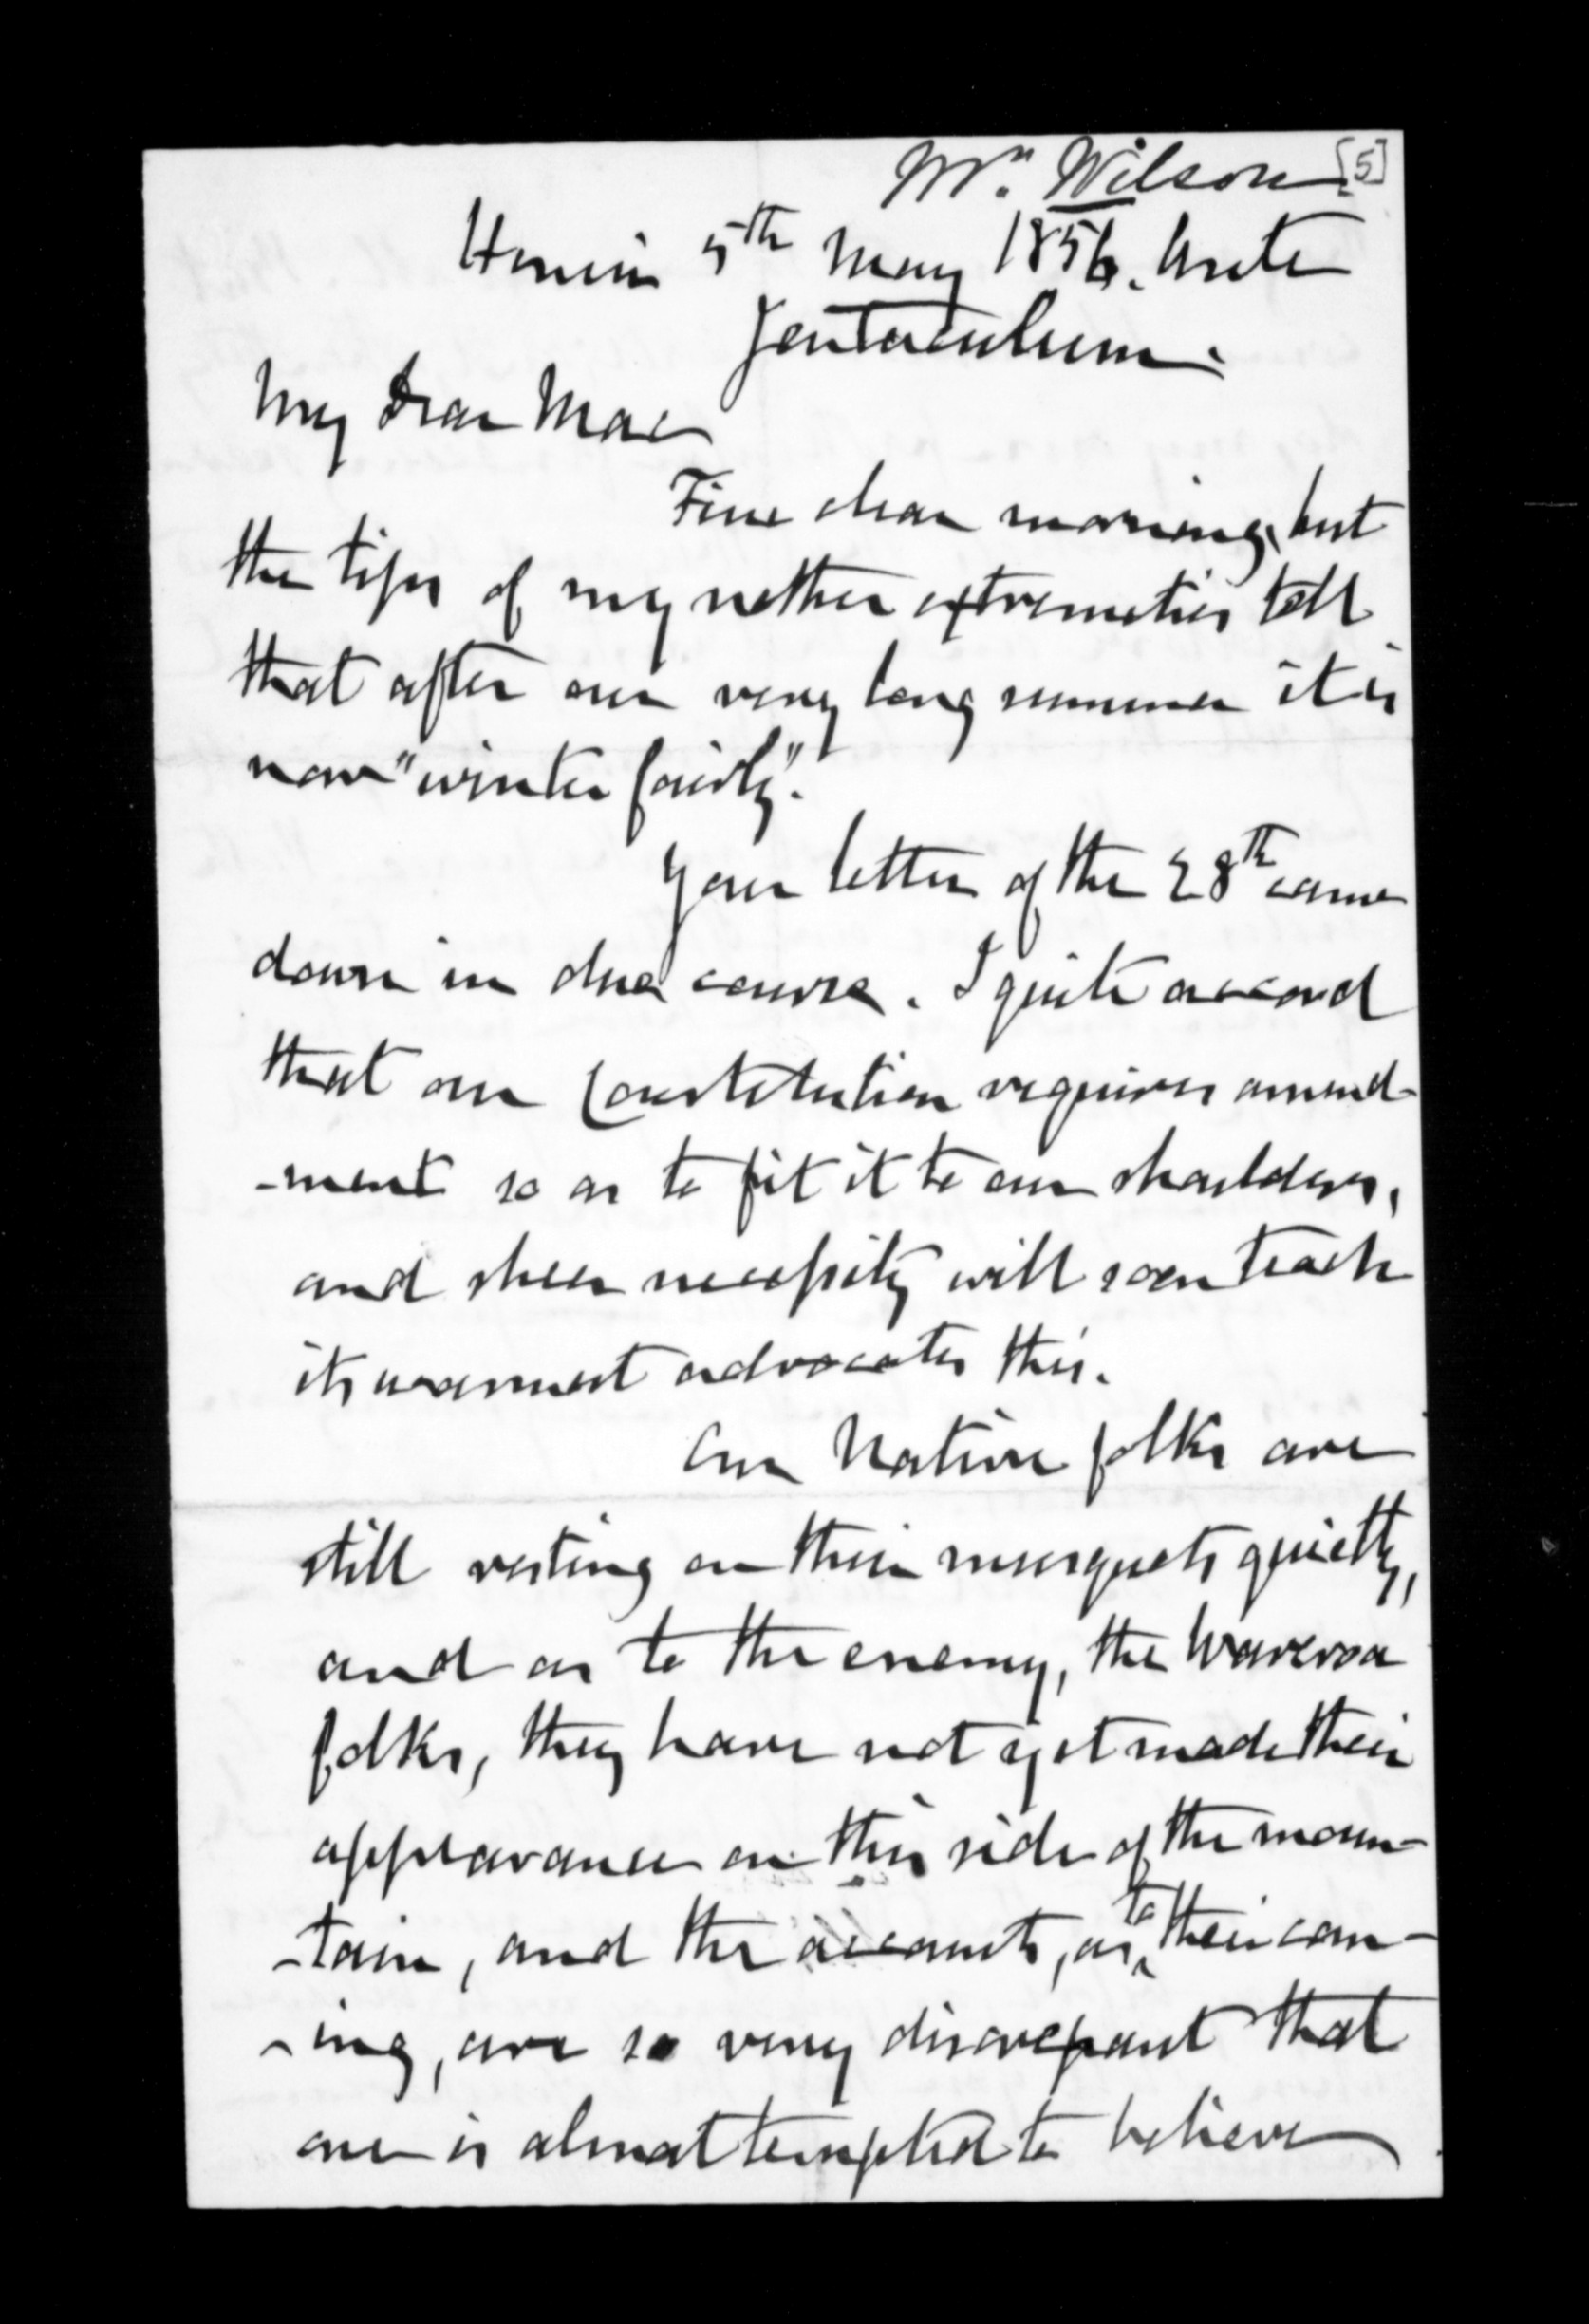 Mr. Wilson [5]
Henui 5th May 1856. Ante
Jentaculum.
My Dear Mac
Fine clear morning, but
the tips of my nether extremeties tell
that after our very long summer it is
now "winter fairly".
Your letter of the 28th came
down in due course. I quite accord
that our Constitution requires amend-
-ment so as to fit it to our shoulders,
and sheer necessity will soon teach
its warmest advocates this.
Our Native folks are
still resting on their musquets quietly,
and as to the enemy, the Wareroa
folks, they have not yet made their
appearance on this side of the moun-
-tain, and the accounts, as to their com-
-ing, are so very discrepant that
one is almost tempted to believe